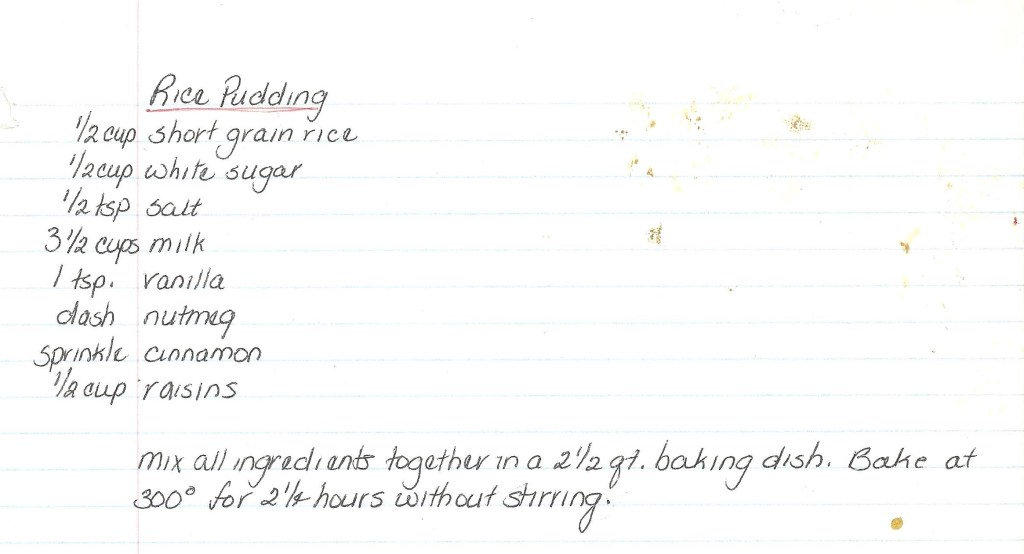 Rice Pudding
1/2 cup short grain rice
1/2 cup white sugar
1/2 tsp salt
3 1/2 cups milk
1 tsp. vanilla
dash nutmeg
sprinkle cinnamon
1/2 cup raisins
Mix all ingredients together in a 2 1/2 qt. baking dish. Bake at
300° for 2 1/4 hours without stirring.